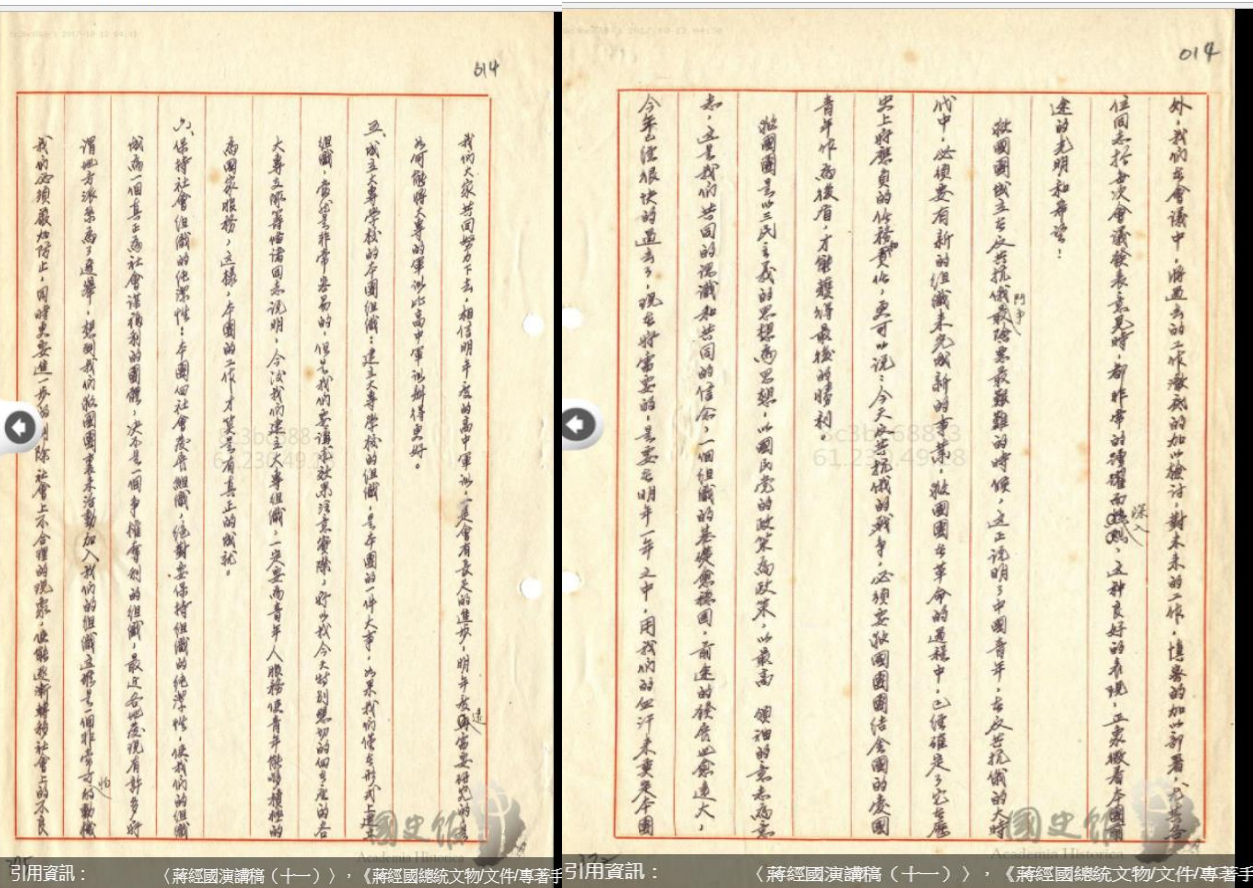 014
我們大家共同努力下去，相信明年度的高中軍訓，一定會有長足的進步，明年我們還需要研究的是
如何能將大專的軍訓比高中軍訓辦得更好。
五、成立大專學校的本團組織：建立大專學校的組織，是本團的一件大事，如果我們僅在形式上建立
組織，當然是非常容易的，但是我們要講究效果注意實際，所以我今天特別懇切的向在座的各
大專支隊籌備諸同志說明，今後我們建立大專組織，一定要為青年人服務使青年能夠積極的
為國家服務，這樣，本團的工作才算是有真正的成就。
六、保持社會組織的純潔性：本團向社會發展組織，絕對要保持組織的純潔性，使我們的組織
成為一個真正為社會謀福利的團體，決不是一個爭權奪利的組織，最近各地發現有許多所
謂地方派系為了選舉，想到我們救國團裏來活動加入我們的組織這將是一個非常可怕的動機
我們必須嚴加防止，同時更要進一步的剷除社會上不合理的現象，使能逐漸轉移社會上的不良
014
外，我們在會議中，將過去的工作澈底的加以檢討，對未來的工作，慎審的加以部署，
位同志於每次會議發表意見時，都非常的踴躍而深入，這種良好的表現，正象徵着本團前
途的光明和希望！
救國團成立在反共抗俄鬥爭最艱難的時候，這正說明了中國青年，在反共抗俄的大時
代中，必須要有新的組織來完成新的事業，救國團在革命的過程中，已經確定了它在歷
史上所應負的任務和責任，更可以說：今天反共抗俄的戰爭，必須要救國團團結全國的愛國
青年作為後盾，才能獲得最後的勝利。
救國團是以三民主義的思想為思想，以國民黨的政策為政策，以最高 領袖的意志為意
志，這是我們共同的認識和共同的信念，一個組織的基礎愈穩固，前途的發展也愈遠大，
今年已經很快的過去了，現在所需要的，是要在明年一年之中，用我們的血汗來奠定本團
國史館
Academia Historica
國史館
Academia Historica
引用資訊：
〈蔣經國演講稿（十一）〉，《蔣經國總統文物/文件/專著手
引用資訊：
〈蔣經國演講稿（十一）〉，《蔣經國總統文物/文件/專著手